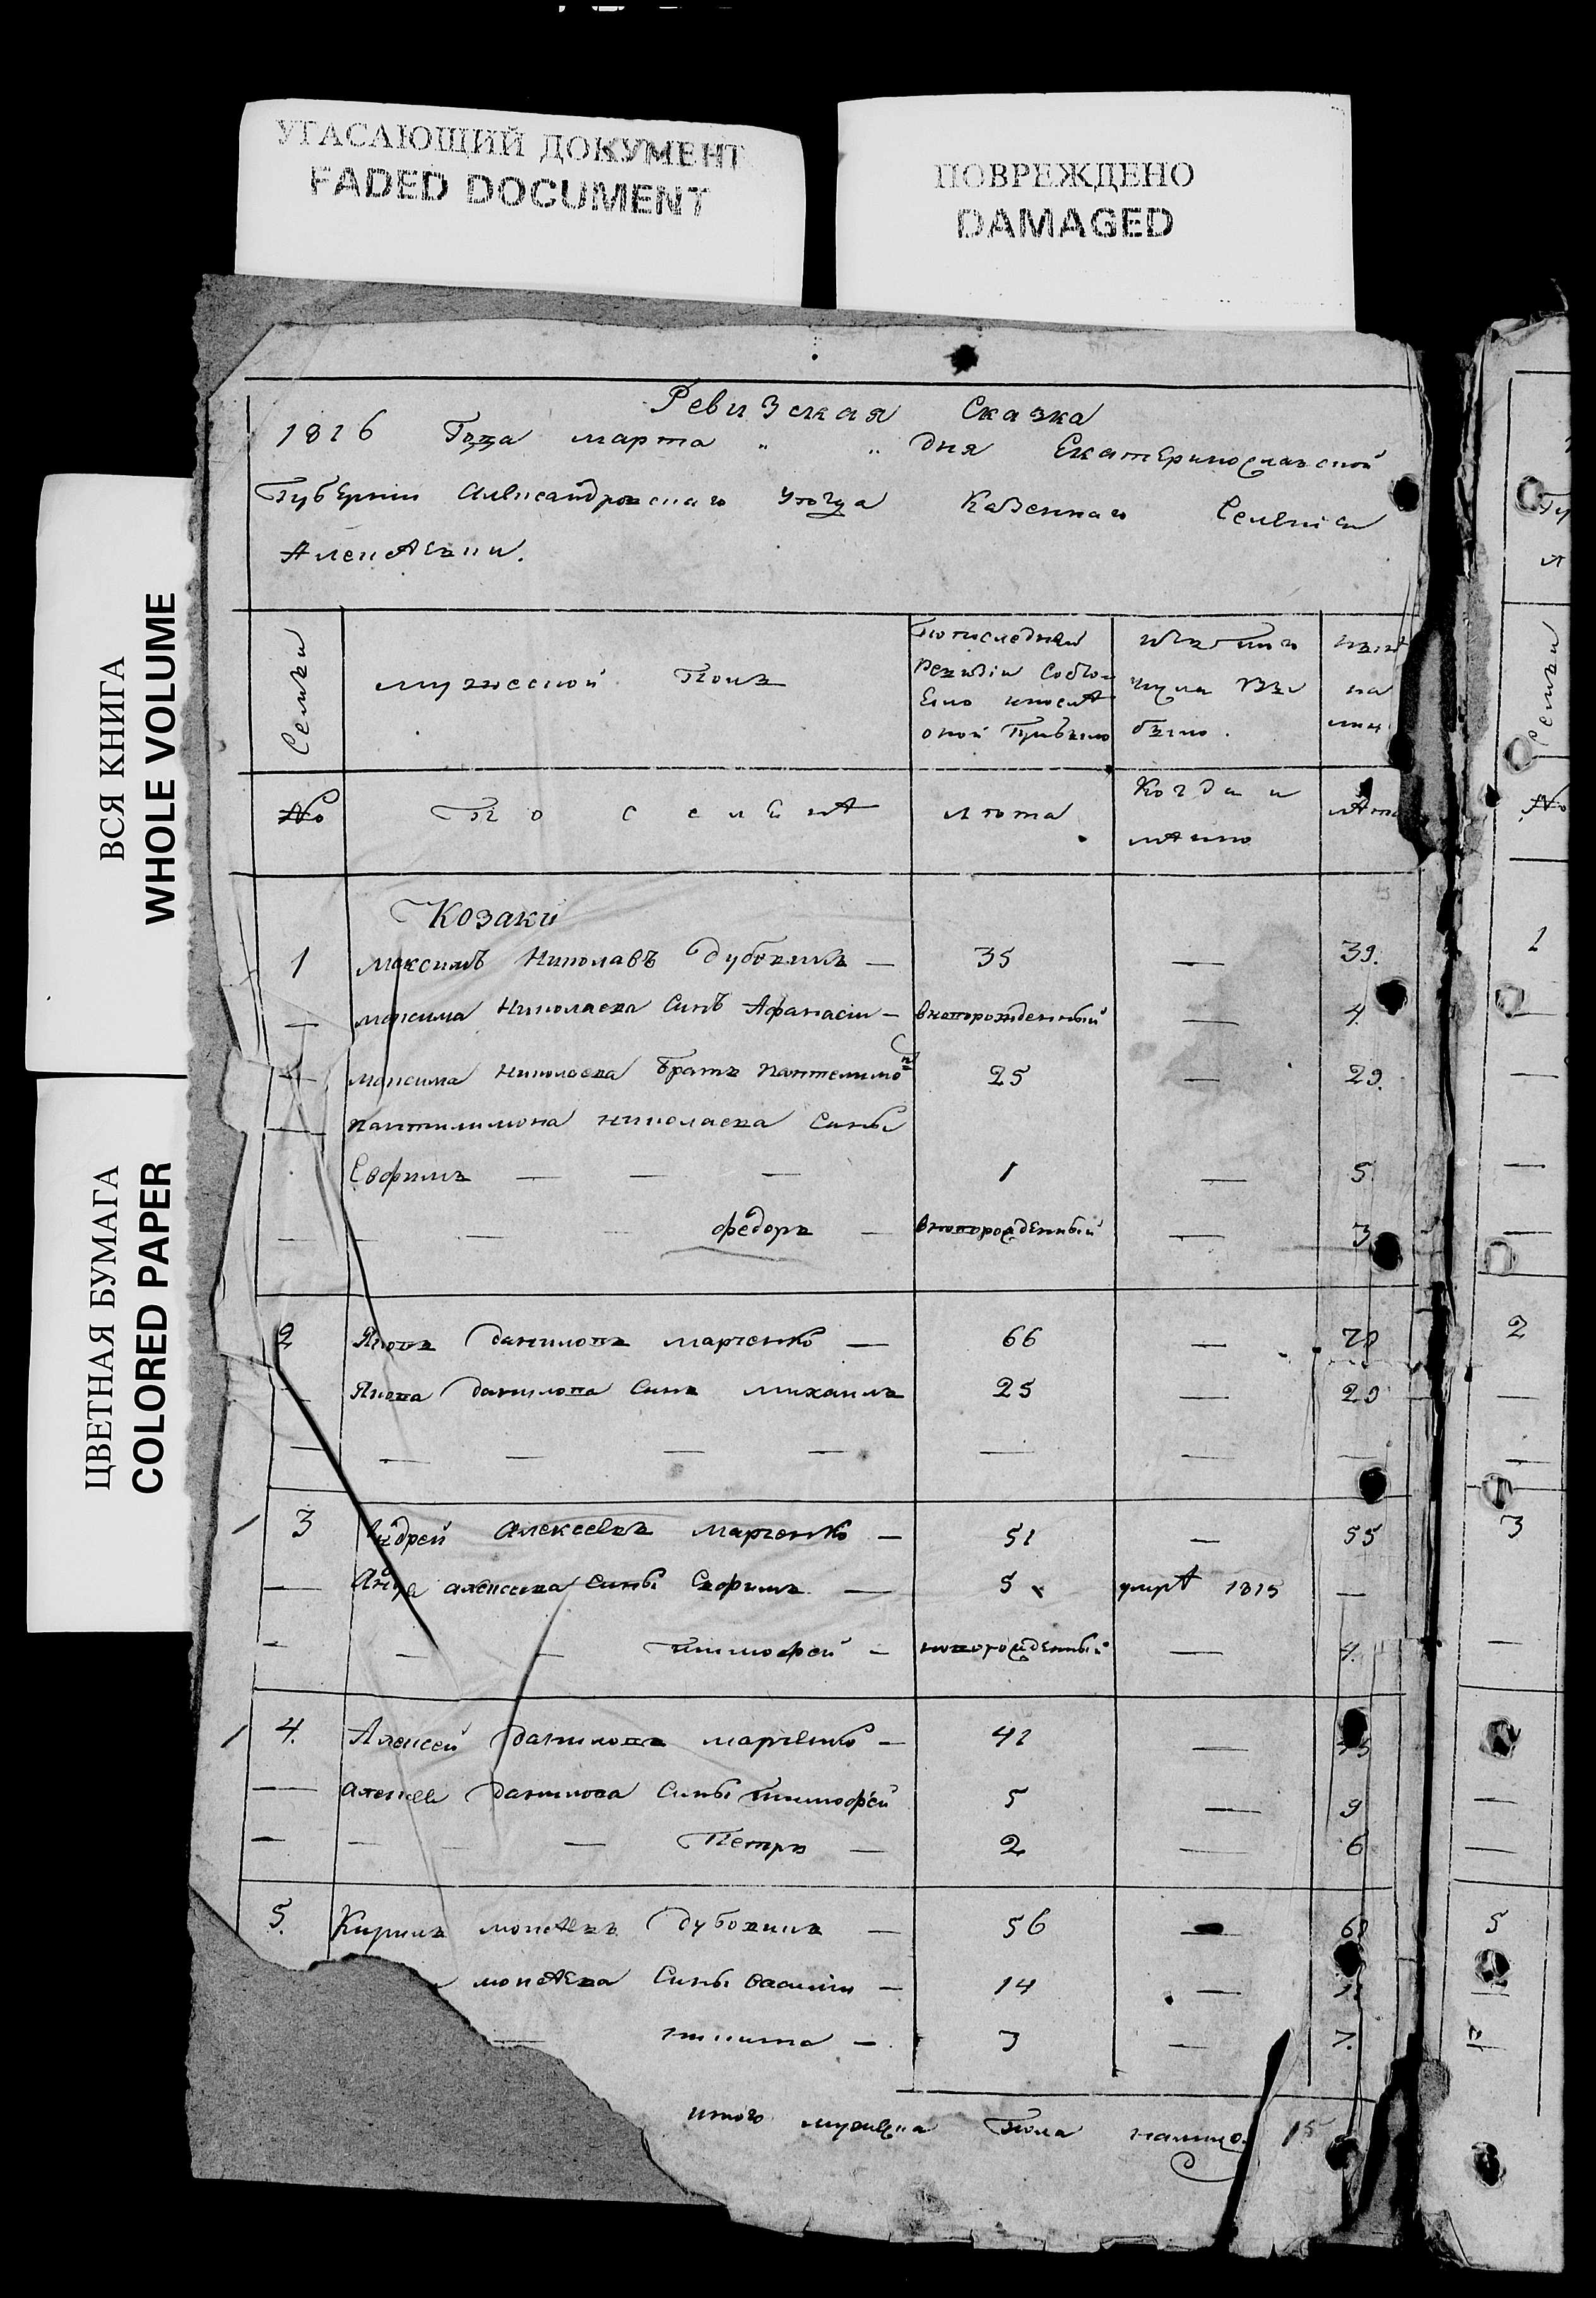 УГАСАЮЩИЙ ДОКУМЕНТ
FADED DOCUMENT
ПОВРЕЖДЕНО
DAMAGED
ВСЯ КНИГА
WHOLE VOLUME
ЦВЕТНАЯ БУМАГА
COLORED PAPER
Ревизская Сказка
1816 Года марта " " дня Екатеринославской
Губернии Александровскаго уезда Казеннаго Селенія
Алексѣевки.
Семьи
мужеской Полъ
По последней
ревизіи Состо-
яло и после
оной Прибыло
Изъ того
числа
было.
изъ
на
лиц
№
По с е л ѣ
лета
Когда и
лѣта
Козаки
1 Максимъ Николаевъ Дубовикъ — 35 — 39.
— максима Николаева Синъ Афанасіи — вноворожденный — 4.
— максима Николаева Братъ Пантелимонъ 25 — 29.
— Пантилимона Николаева Сины
Евфимъ — — — 1 — 5
— — — — федоръ — вноворожденный — 3
2 Яковъ Даниловъ марченко — 66 — 70
— Якова Данилова Синъ Михаилъ 25 — 29
— — — — — — — —
3 Андрей Алексеевъ Марченко — 51 — 55
— Андрея алексеева Сины Евфимъ — 5 умрѣ 1815 —
— — — тимофей — новорожденный — 4.
4. Алексей Даниловъ марченко — 41 —
— алексея Данилова Сины тимофей 5 — 9
— — — Петръ — 2 — 6
5. Кирилъ Дубовикъ — 56 — 60
Сины Василіи — 14 —
— никита — 3 — 7.
итого мужеска Пола налицо 15
Семьи
№
1
2
3
5